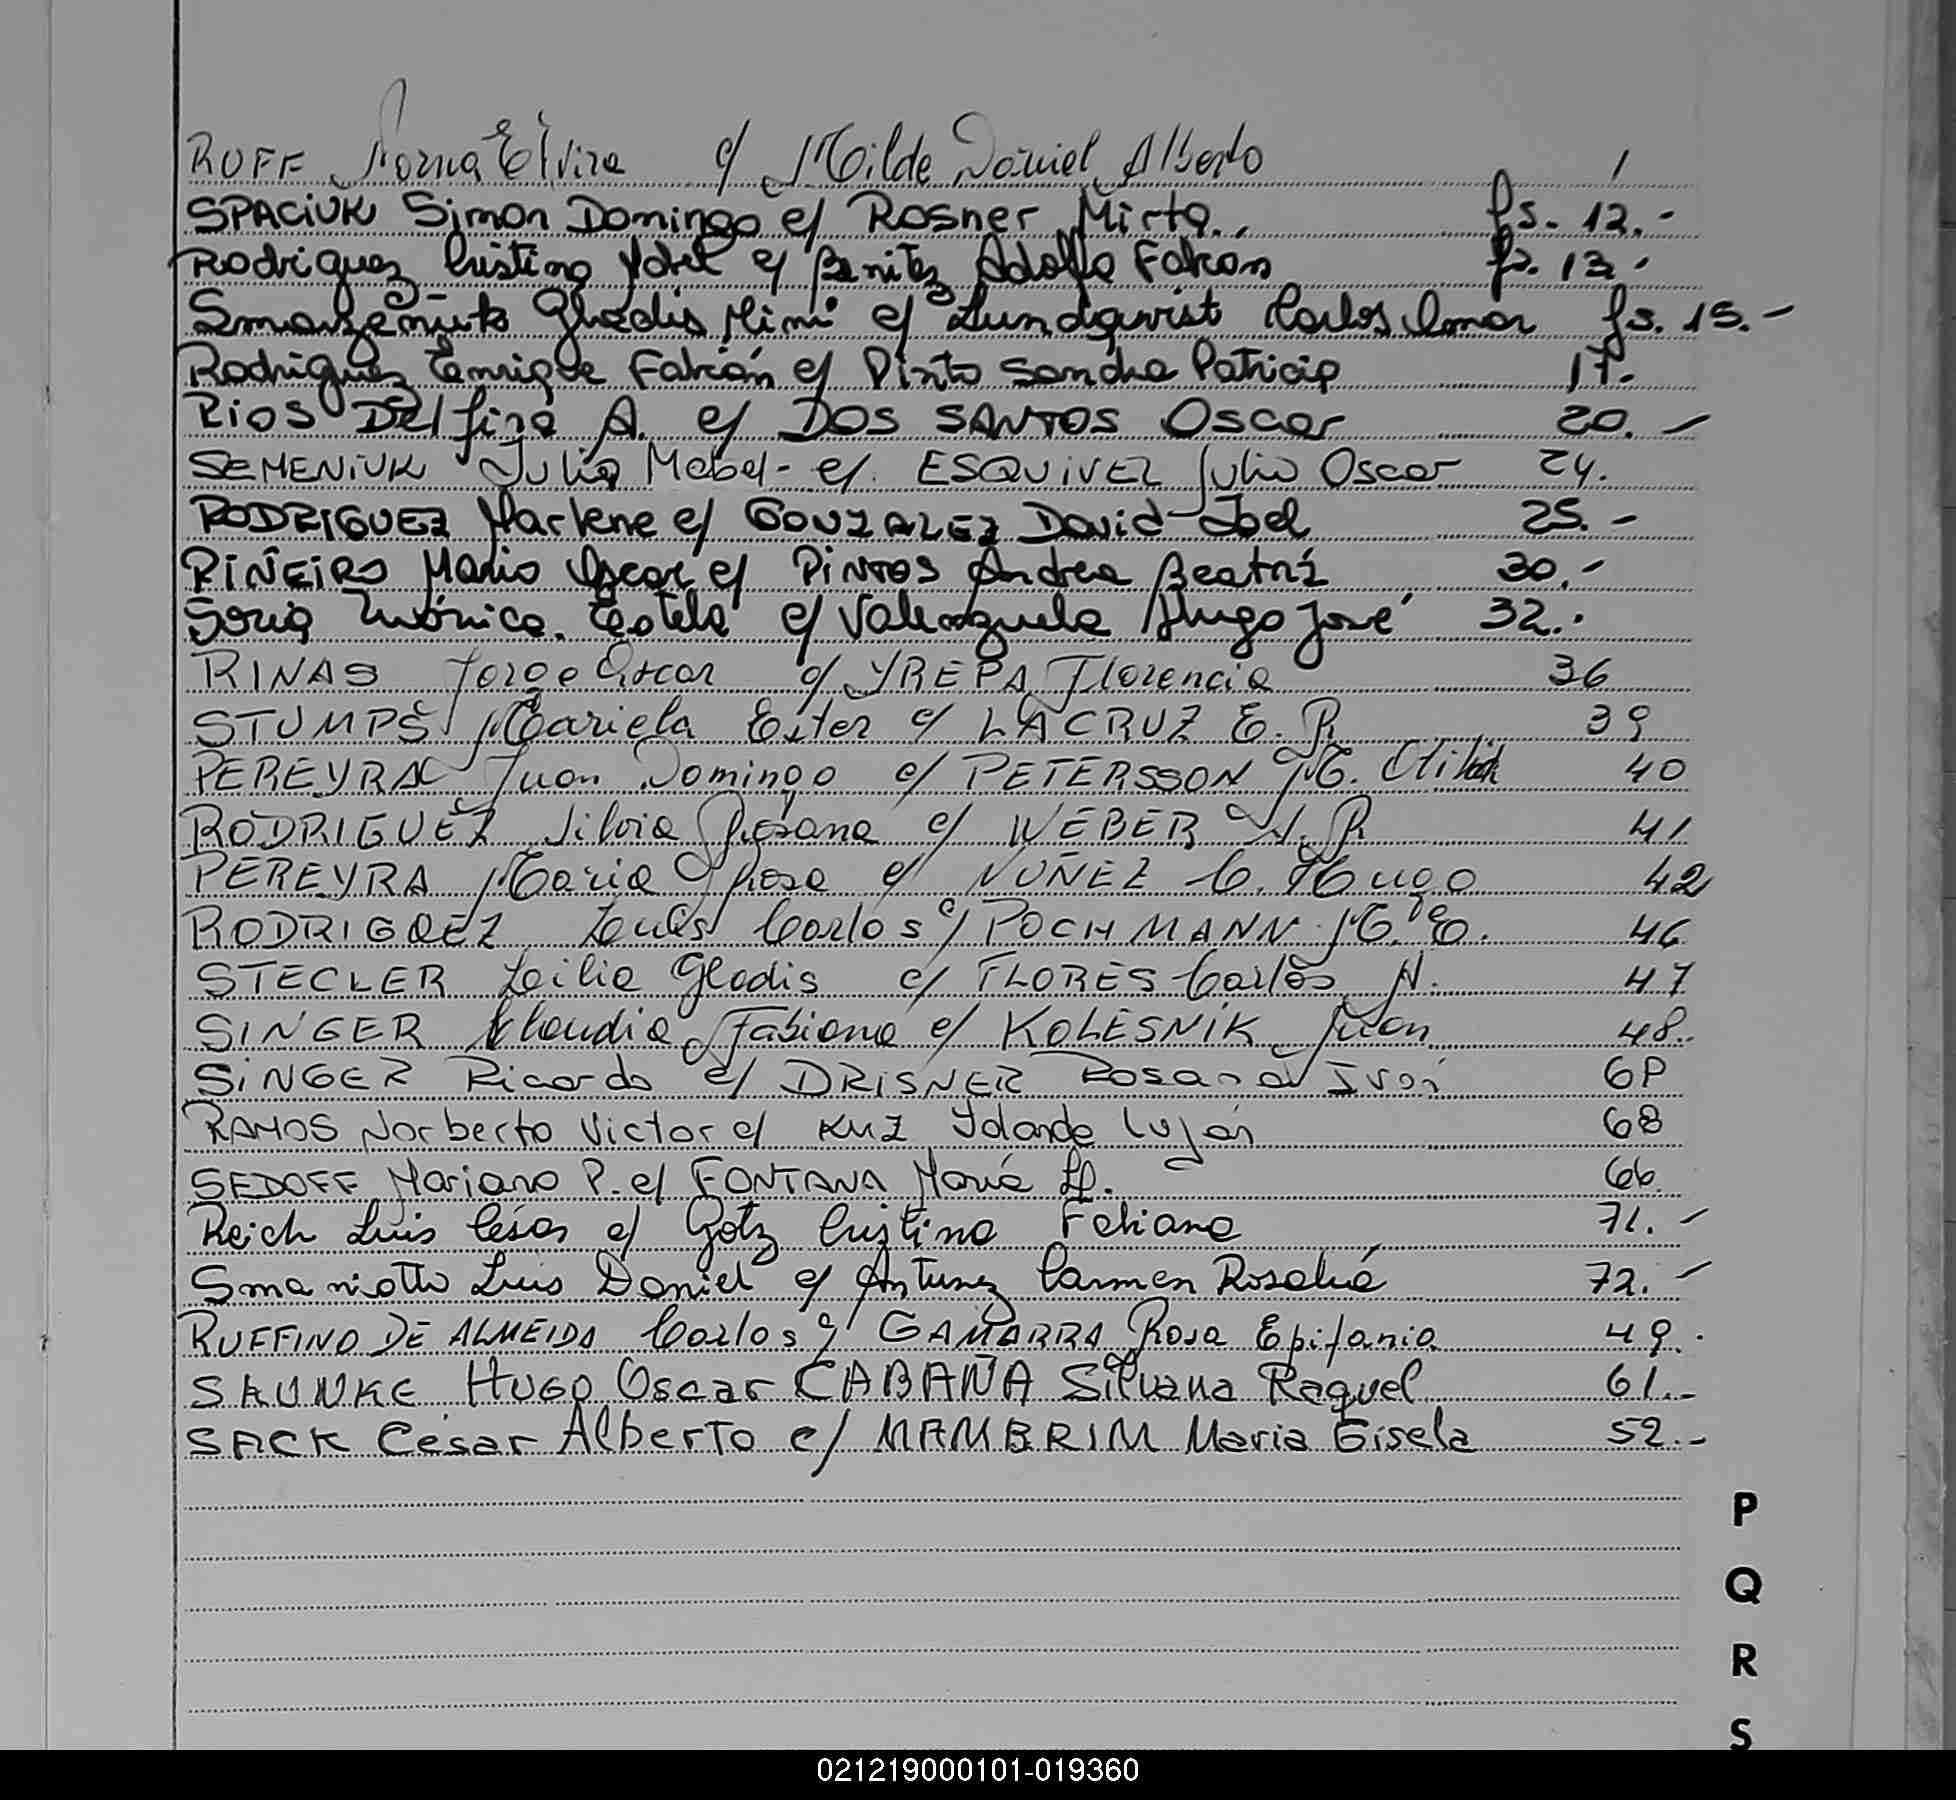 RUFF Norma Elvira c/ Milde Daniel Alberto 1
SPACIUK Simon Domingo c/ Rosner Mirta. fs. 12.-
Rodriguez Cristina Mabel c/ Benitez Adolfo Fabian fs. 13.
Gladis Mimi c/ Lundqvist Carlos Omar fs. 15.-
Rodriguez Enrique Fabián c/ Pinto Sandra Patricia 17.
RIOS Delfina A. c/ DOS SANTOS Oscar 20.-
SEMENIUK Julia Mabel- c/. ESQUIVEL Julio Oscar 24.
RODRIGUEZ Marlene c/ GONZALEZ David Joel 25.-
PIÑEIRO Mario Oscar c/ PINTOS Andrea Beatriz 30.-
Soria Mónica. Estela c/ Valenzuela Hugo José 32.-
RINAS Jorge Oscar c/ YREPA Florencia 36
STUMPS Mariela Ester c/ LACRUZ E. R 39
PEREYRA Juan Domingo c/ PETERSSON M. Otilia 40
RODRIGUEZ Silvia Rosana c/ WEBER N. R 41
PEREYRA Maria Rosa c/ NUÑEZ C. Hugo 42
RODRIGUEZ Luis Carlos c/ POCHMANN M. E. 46
STECLER Lilia Gladis c/ FLORES Carlos A. 47
SINGER Claudia Fabiana c/ KOLESNIK Juan 48.
SINGER Ricardo c/ DRISNER Rosana 6P
RAMOS Norberto Victor c/ KUZ Yolanda Luján 68
SEDOFF Mariano P. c/ FONTANA María 66.
Reich Luis César c/ Götz Cristina Fabiana 71.-
Smaniotto Luis Daniel c/ Antunez Carmen Rosalía 72.-
RUFFINO DE ALMEIDA Carlos c/ GAMARRA Rosa Epifania 49.
SAUNKE HUGO Oscar CABAÑA Silvana Raquel 61.-
SACK César Alberto c/ MAMBRIM Maria Gisela 52.-
P
Q
R
S
021219000101-019360